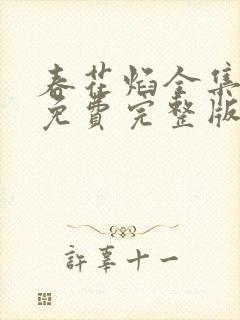 春花焰全集
免费完整版
許辜十一